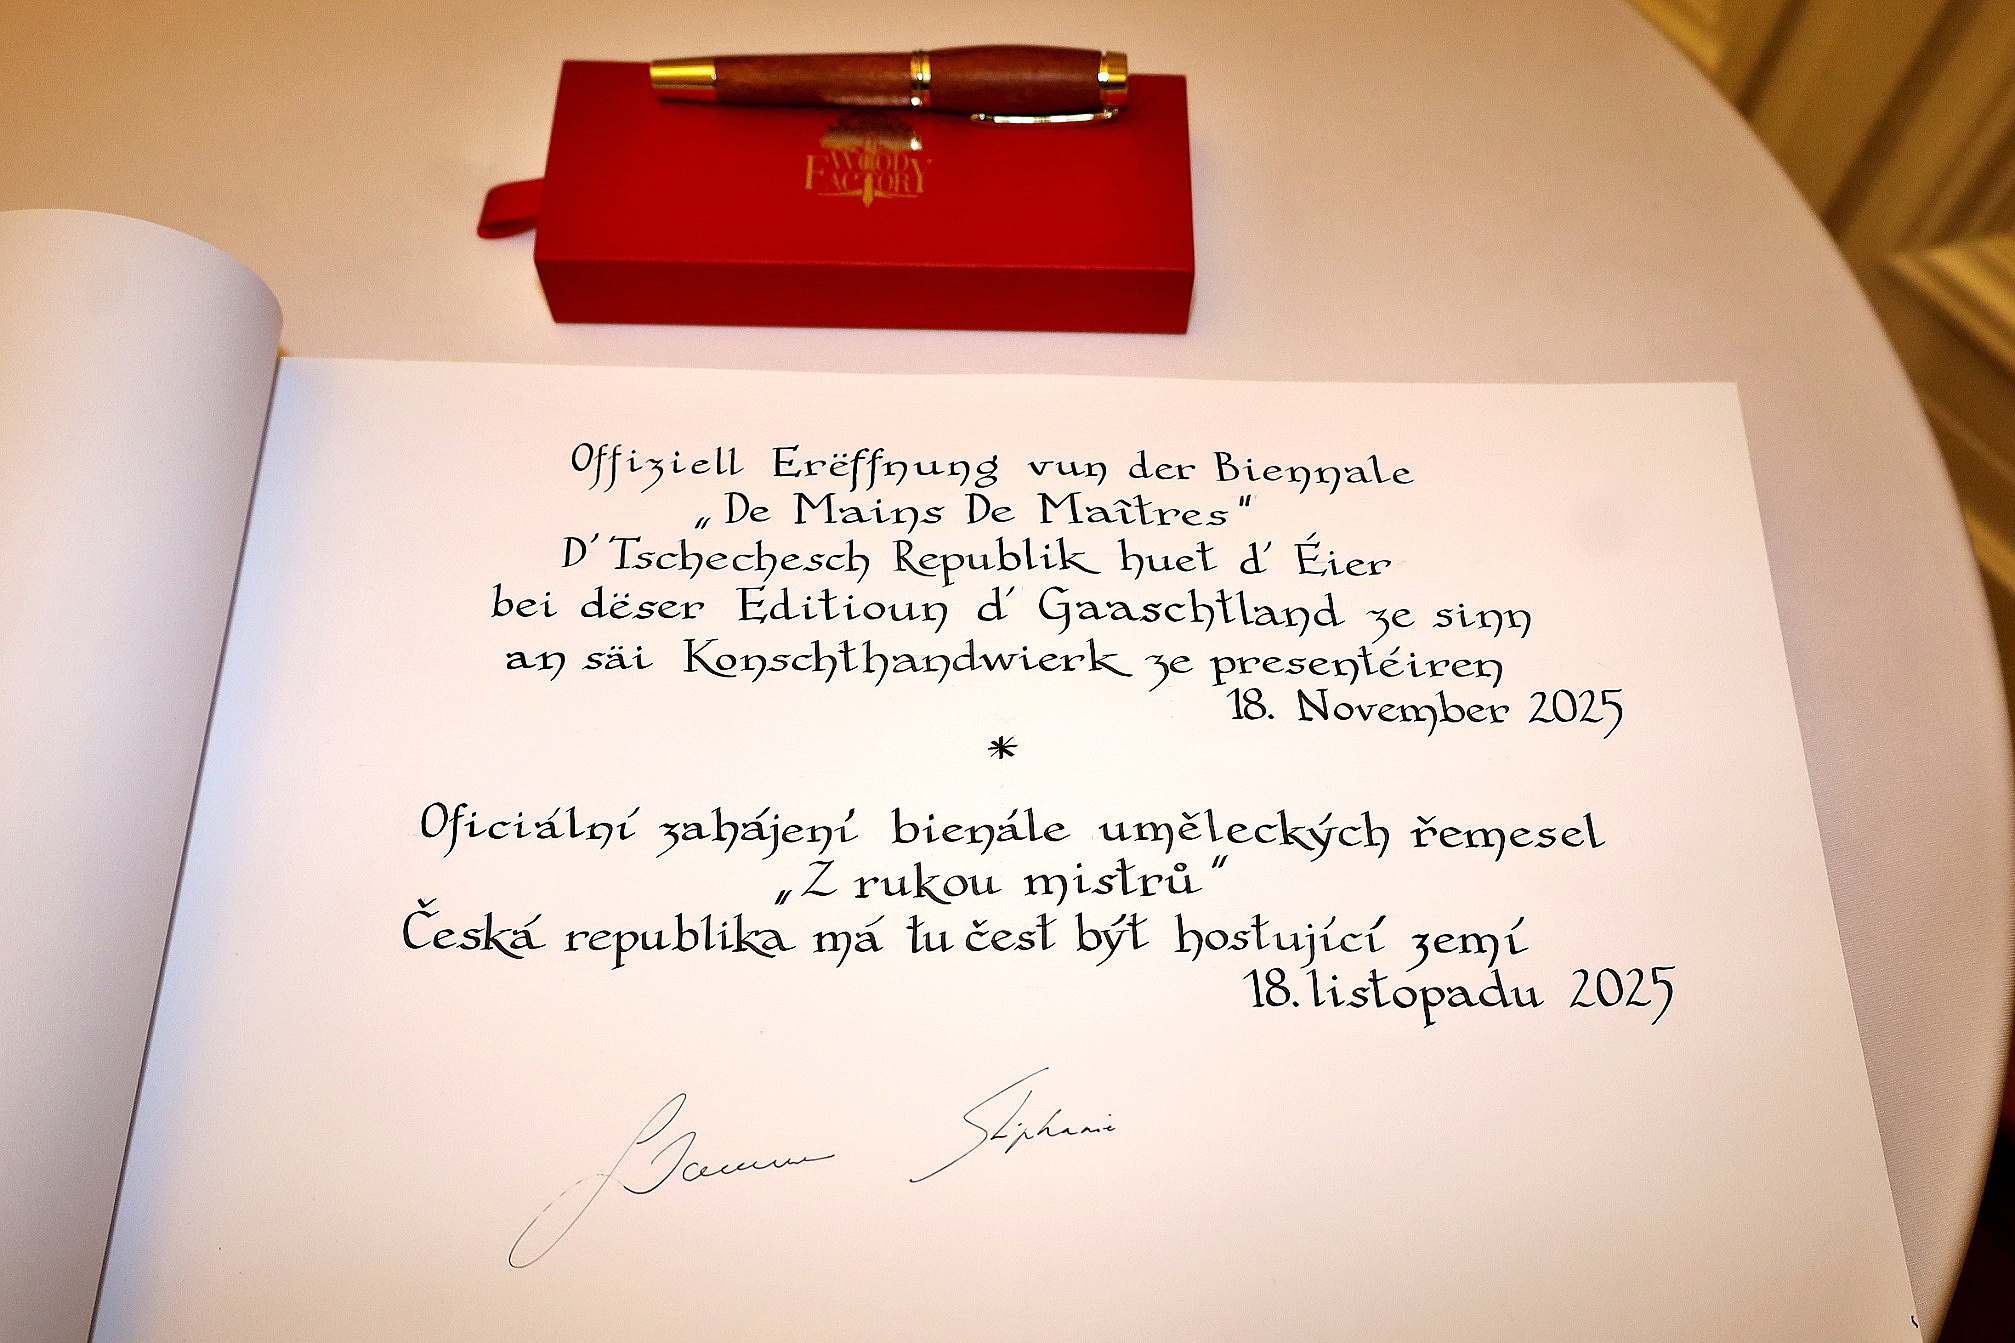 WOODY
FACTORY
Offiziell Erëffnung vun der Biennale
„De Mains De Maîtres"
D'Tschechesch Republik huet d'Éier
bei dëser Editioun d'Gaaschtland ze sinn
an säi Konschthandwierk ze presentéiren
18. November 2025
*
Oficiální zahájení bienále uměleckých řemesel
„Z rukou mistrů"
Česká republika má tu čest být hostující zemí
18. listopadu 2025
Stéphanie